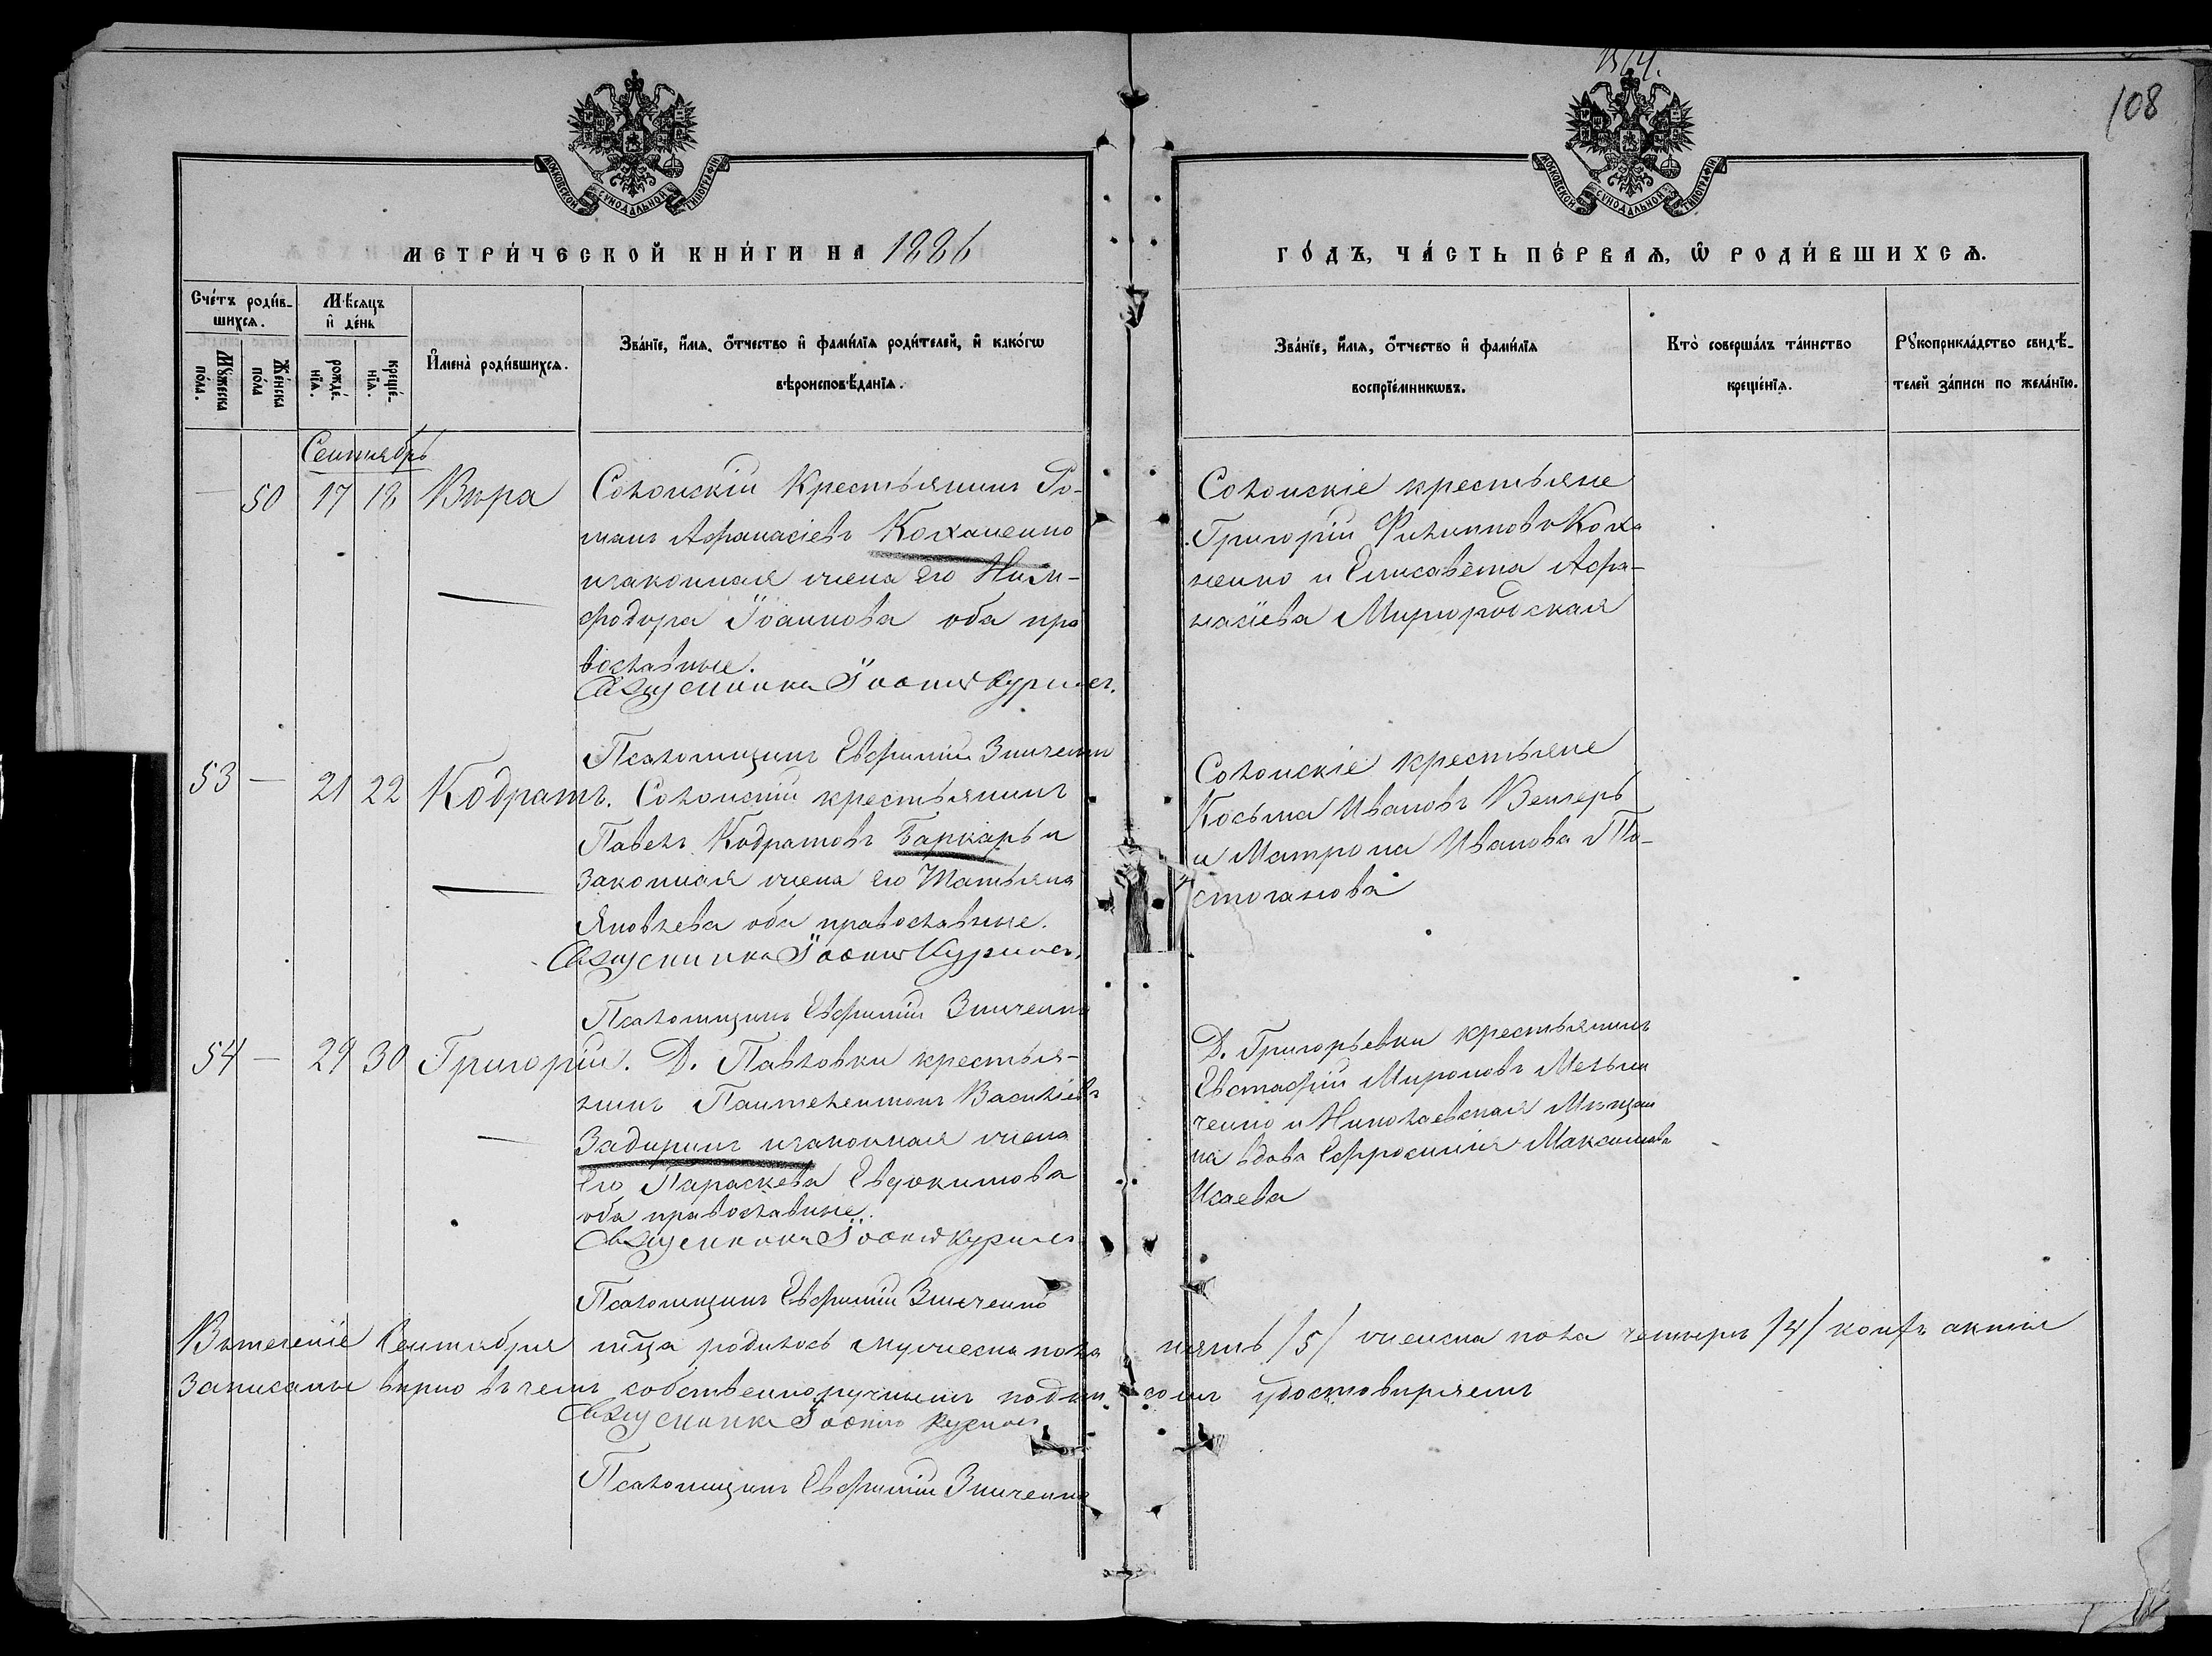 108
МОСКОВСКОЙ СѴНОДАЛЬНОЙ ТИПОГРАФІИ
МОСКОВСКОЙ СѴНОДАЛЬНОЙ ТИПОГРАФІИ
МЕТРИ́ЧЕСКОЙ КНИ́ГИ НА 1886
ГО́ДЪ, ЧА́СТЬ ПЕ́РВАѦ, Ѡ РОДИ́ВШИХСѦ.
Счéтъ роди́вшихсѧ.
Мꙋ́жеска по́ла.
Же́нска по́ла
Мѣ́сяцъ и де́нь
рожде́нїѧ.
креще́нїѧ.
И҆мена̀ роди́вшихсѧ.
Зва́нїе, и҆́мѧ, ѻ҆́тчество и҆ фами́лїѧ роди́телей, и҆ како́гѡ
вѣроисповѣ́данїѧ.
Зва́нїе, и҆́мѧ, ѻ҆́тчество и҆ фами́лїѧ
воспрїе́мникѡвъ.
Кто̀ соверша́лъ та́инство
креще́нїѧ.
Рꙋкоприкла́дство свидѣ́-
телей за́писи по жела́нїю.
Сентябрь
— 50 17 18 Вѣра Солонскій Крестьянинъ Ро-
манъ Афанасіевъ Коханенко
изаконная жена его Ним-
фодора Іоаннова оба пра
вославные.
Священникъ Іоаннъ
Псаломщикъ Евфимій Зинченко
Солонскіе крестьяне
Григорій Филипповъ Коха
ненко и Елисавета Афа-
насіева Миргородская
53 — 21 22 Кодратъ. Солонскій крестьянинъ
Павелъ Кодратовъ Баркарь и
законная жена его Татьяна
Яковлева оба православные.
Священникъ Іоаннъ
Псаломщикъ Евфимій Зинченко
Солонскіе крестьяне
Косьма Ивановъ Венгеръ
и Матрона Иванова По-
столанова
54 — 29 30 Григорій. Д. Павловки крестья-
нинъ Пантелеимонъ Василіевъ
Задиринъ изаконная жена
его Параскева Евдокимова
оба православные.
Священникъ Іоаннъ
Псаломщикъ Евфимій Зинченко
Д. Григорьевки крестьянинъ
Евстафій Мироновъ Мельни
ченко и Николаевская Мѣщан
ка вдова Ефросинія Максимова
Исаева
Втеченіе Сентября м̃ца родилось мужеска пола пять /5/ женска пола четыре /4/ коихъ актыи
Записаны вѣрно въ чемъ собственноручнымъ подпи сомъ удостовѣряемъ
Священникъ Іоаннъ
Псаломщикъ Евфимій Зинченко